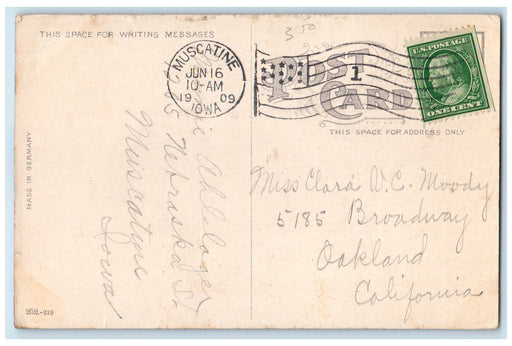 THIS SPACE FOR WRITING MESSAGES
MUSCATINE
JUN 16
10-AM
1909
IOWA
1
POST
CARD
U.S. POSTAGE
ONE CENT
THIS SPACE FOR ADDRESS ONLY
MADE IN GERMANY
Nebraska St
Muscatine
Iowa
Miss Clara V.C. Moody
5185 Broadway
Oakland
California
252.-219